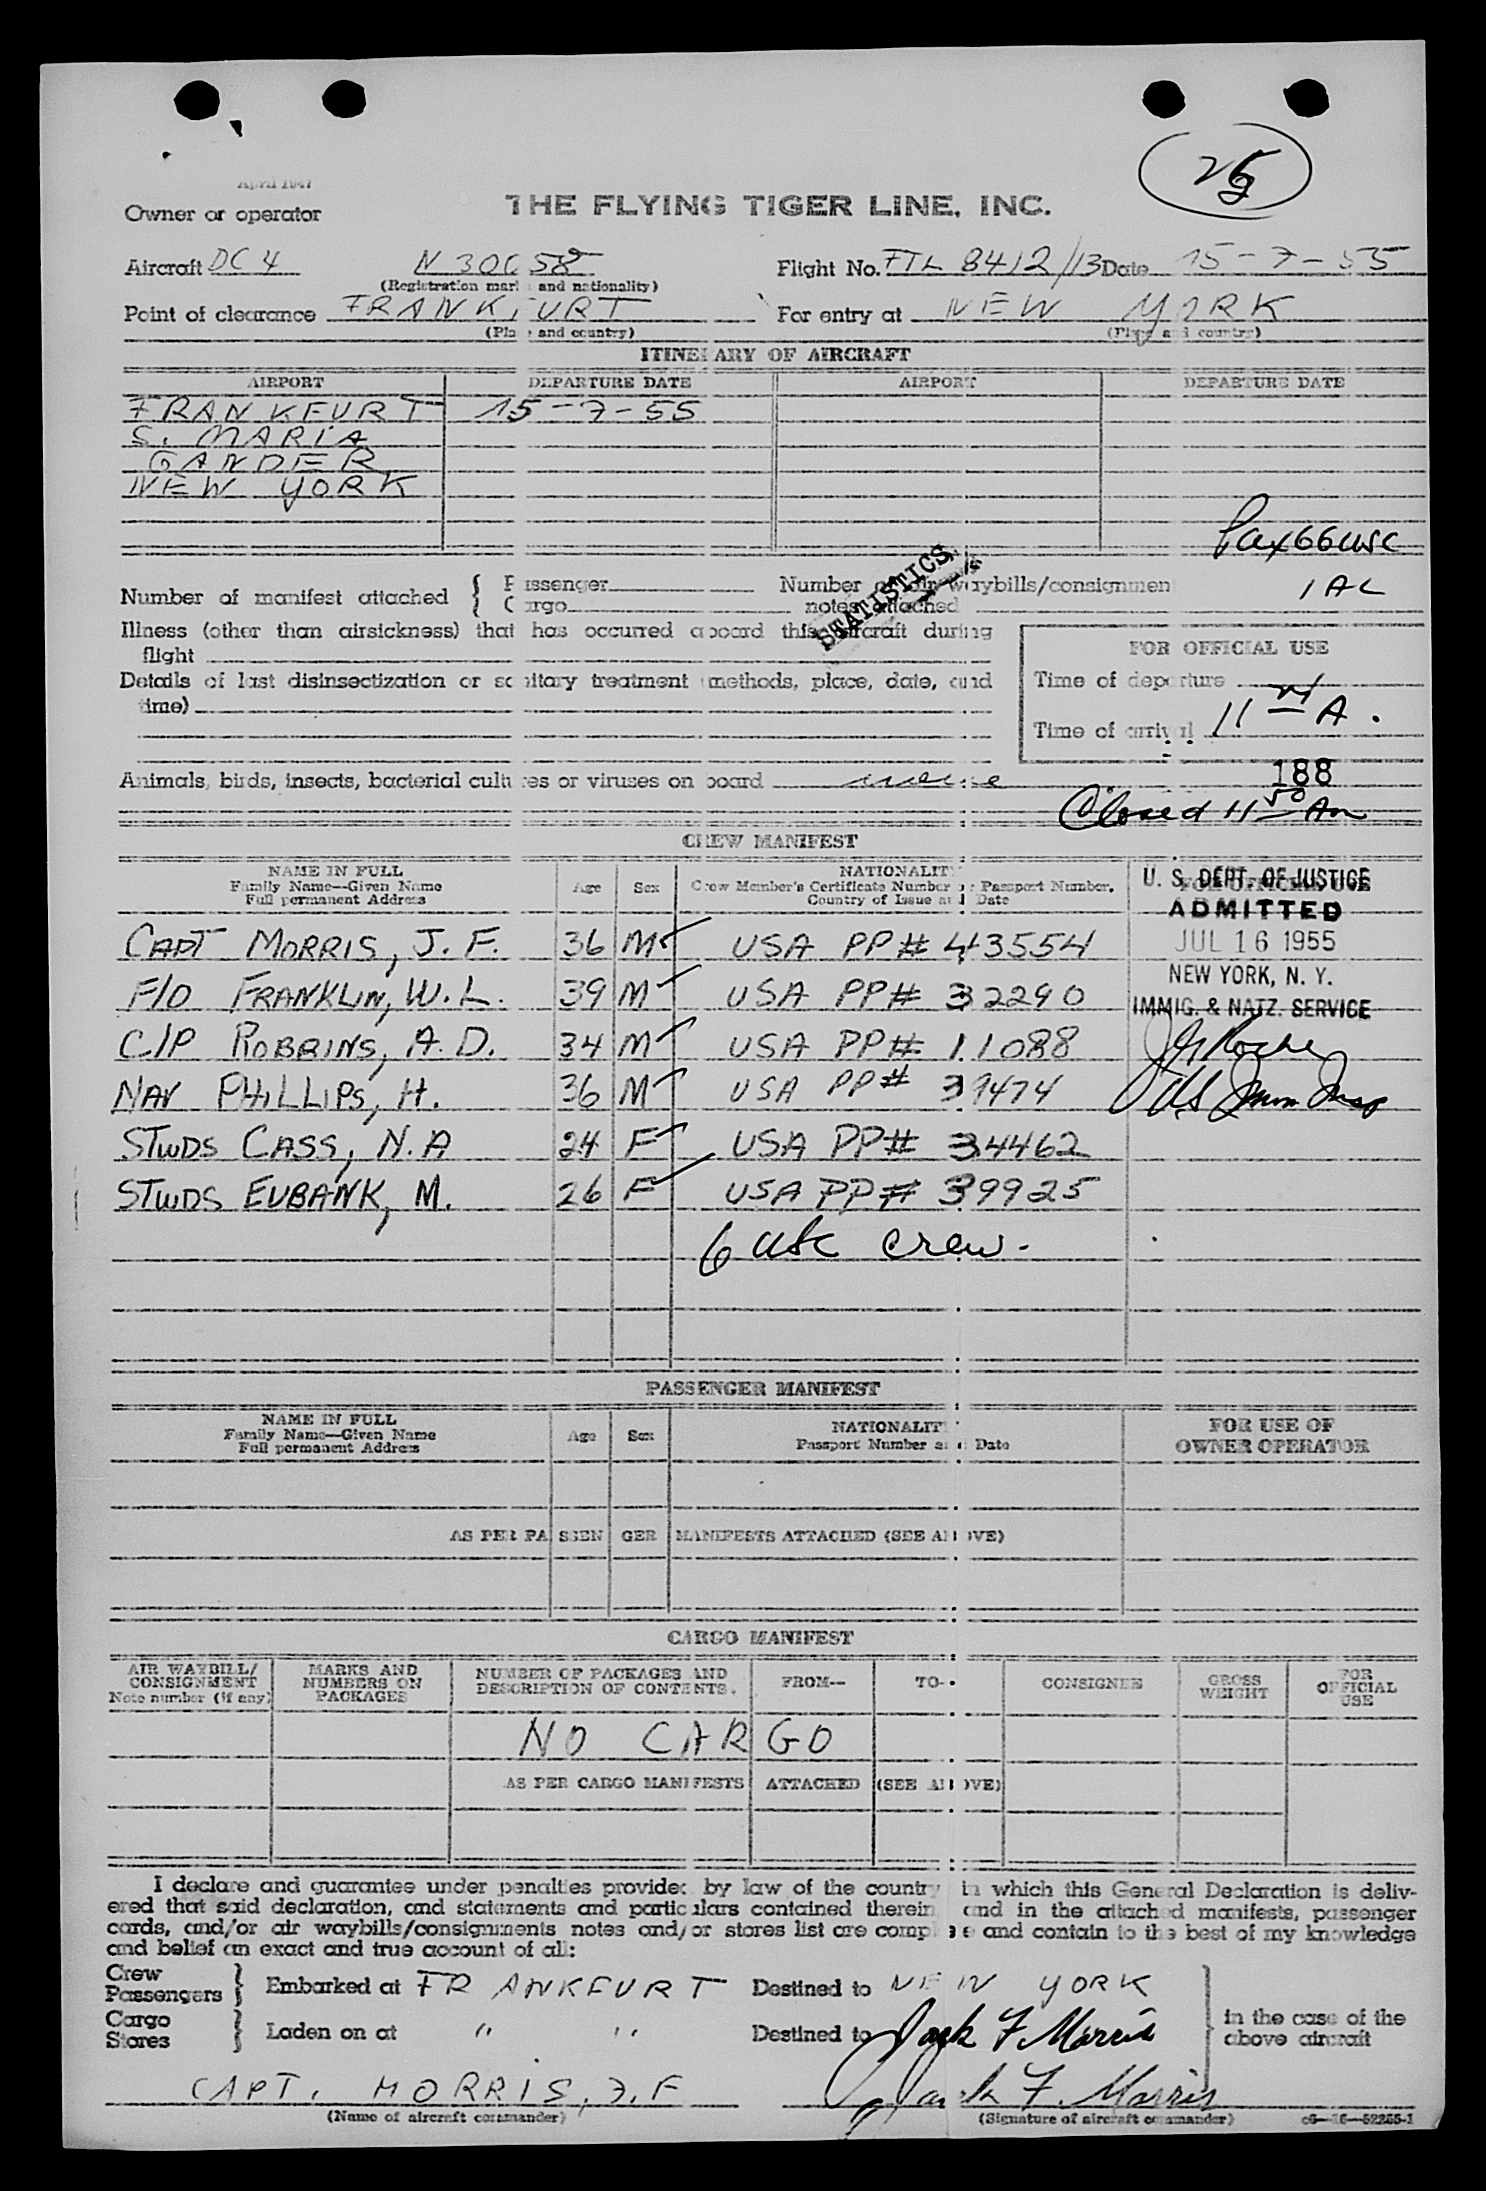 April 1947
Owner or operator THE FLYING TIGER LINE, INC.
Aircraft DC 4 N 30058 Flight No. FTL 8412/13 Date 15-7-55
(Registration mark and nationality)
Point of clearance FRANKFURT For entry at NEW YORK
(Place and country) (Place and country)
ITINERARY OF AIRCRAFT
AIRPORT DEPARTURE DATE AIRPORT DEPARTURE DATE
FRANKFURT 15-7-55
S. MARIA
GANDER
NEW YORK
Pax 66 USC
1 AL
Number of manifest attached { Passenger Number of air waybills/consignment
{ Cargo notes attached
STATISTICS
Illness (other than airsickness) that has occurred aboard this aircraft during
flight
Details of last disinsectization or sanitary treatment (methods, place, date, and
time)
FOR OFFICIAL USE
Time of departure
Time of arrival 11 A.
Animals, birds, insects, bacterial cultures or viruses on board none
188
Closed 11 50 Am
CREW MANIFEST
NAME IN FULL Age Sex NATIONALITY FOR OFFICIAL USE
Family Name—Given Name Crew Member's Certificate Number or Passport Number,
Full permanent Address Country of Issue and Date
U. S. DEPT. OF JUSTICE
ADMITTED
JUL 16 1955
NEW YORK, N. Y.
IMMIG. & NATZ. SERVICE
CAPT MORRIS, J. F. 36 M USA PP# 443554
F/O FRANKLIN, W. L. 39 M USA PP# 32290
C/P ROBBINS, A. D. 34 M USA PP# 11088
NAV PHILLIPS, H. 36 M USA PP# 39474
STWDS CASS, N. A 24 F USA PP# 34462
STWDS EUBANK, M. 26 F USA PP# 39925
US Imm Insp
6 USC crew.
PASSENGER MANIFEST
NAME IN FULL Age Sex NATIONALITY FOR USE OF
Family Name—Given Name Passport Number and Date OWNER OPERATOR
Full permanent Address
AS PER PASSENGER MANIFESTS ATTACHED (SEE ABOVE)
CARGO MANIFEST
AIR WAYBILL/ MARKS AND NUMBER OF PACKAGES AND FROM— TO— CONSIGNEE GROSS FOR
CONSIGNMENT NUMBERS ON DESCRIPTION OF CONTENTS. WEIGHT OFFICIAL
Note number (if any) PACKAGES USE
NO CARGO
AS PER CARGO MANIFESTS ATTACHED (SEE ABOVE)
I declare and guarantee under penalties provided by law of the country in which this General Declaration is deliv-
ered that said declaration, and statements and particulars contained therein and in the attached manifests, passenger
cards, and/or air waybills/consignments notes and/or stores list are complete and contain to the best of my knowledge
and belief an exact and true account of all:
Crew
Passengers } Embarked at FRANKFURT Destined to NEW YORK
Cargo
Stores } Laden on at " " Destined to Jack F Morris
in the case of the
above aircraft
CAPT. MORRIS, J. F Jack F. Morris
(Name of aircraft commander) (Signature of aircraft commander) c6—16—52255-1